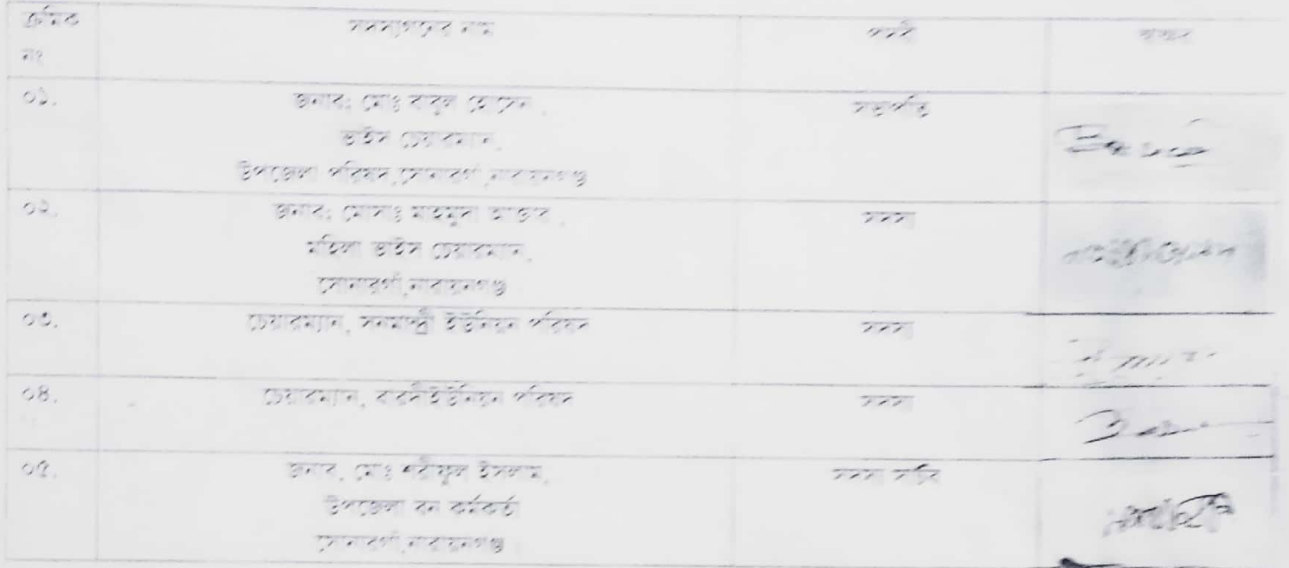 ক্রমিক
নং
সদস্যগনের নাম
পদবী
স্বাক্ষর
০১.
জনাব: মোঃ বাবুল হোসেন,
ভাইস চেয়ারম্যান,
উপজেলা পরিষদ,সোনারগাঁ,নারায়নগঞ্জ
সভাপতি
০২.
জনাব: মোসাঃ মাহমুদা আক্তার,
মহিলা ভাইস চেয়ারম্যান,
সোনারগাঁ,নারায়নগঞ্জ
সদস্য
০৩.
চেয়ারম্যান, সনমান্দী ইউনিয়ন পরিষদ
সদস্য
০৪.
চেয়ারম্যান, বারদীইউনিয়ন পরিষদ
সদস্য
০৫.
জনাব, মোঃ শরীফুল ইসলাম,
উপজেলা বন কর্মকর্তা
সোনারগাঁ,নারায়নগঞ্জ
সদস্য সচিব